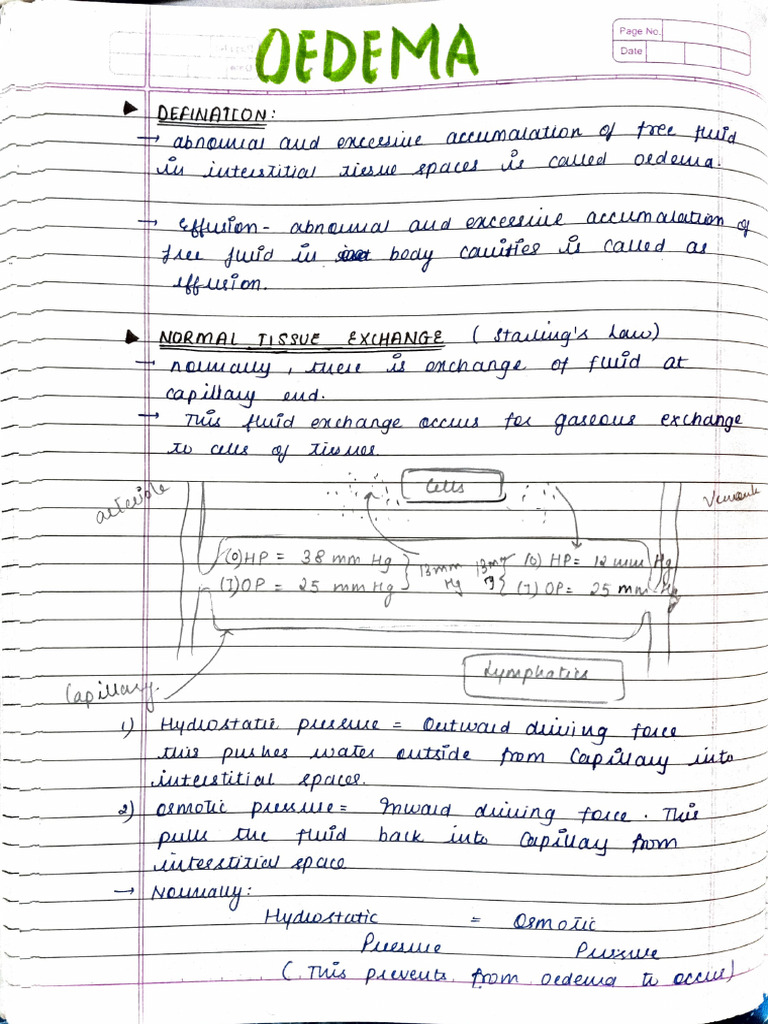 Page No.
Date
OEDEMA
▶ DEFINATION:
→ abnormal and excessive accumalation of free fluid
in interstitial tissue spaces is called oedema.
→ Effusion - abnormal and excessive accumalation of
free fluid in body cavities is called as
effusion.
▶ NORMAL TISSUE EXCHANGE ( Starling's Law)
→ normally, there is exchange of fluid at
capillary end.
→ This fluid exchange occurs for gaseous exchange
to cells of tissues.
arteriole
Cells
Venule
(O) HP = 38 mm Hg
(I) OP = 25 mm Hg
13mm
Hg
13mm
Hg
(O) HP = 12 mm Hg
(I) OP = 25 mm Hg
Lymphatics
Capillary.
1) Hydrostatic pressure = Outward driving force
this pushes water outside from Capillary into
interstitial spaces.
2) Osmotic pressure = Inward driving force. This
pulls the fluid back into Capillary from
interstitial space
→ Normally:
Hydrostatic = Osmotic
Pressure Pressure
(This prevents from oedema to occur)